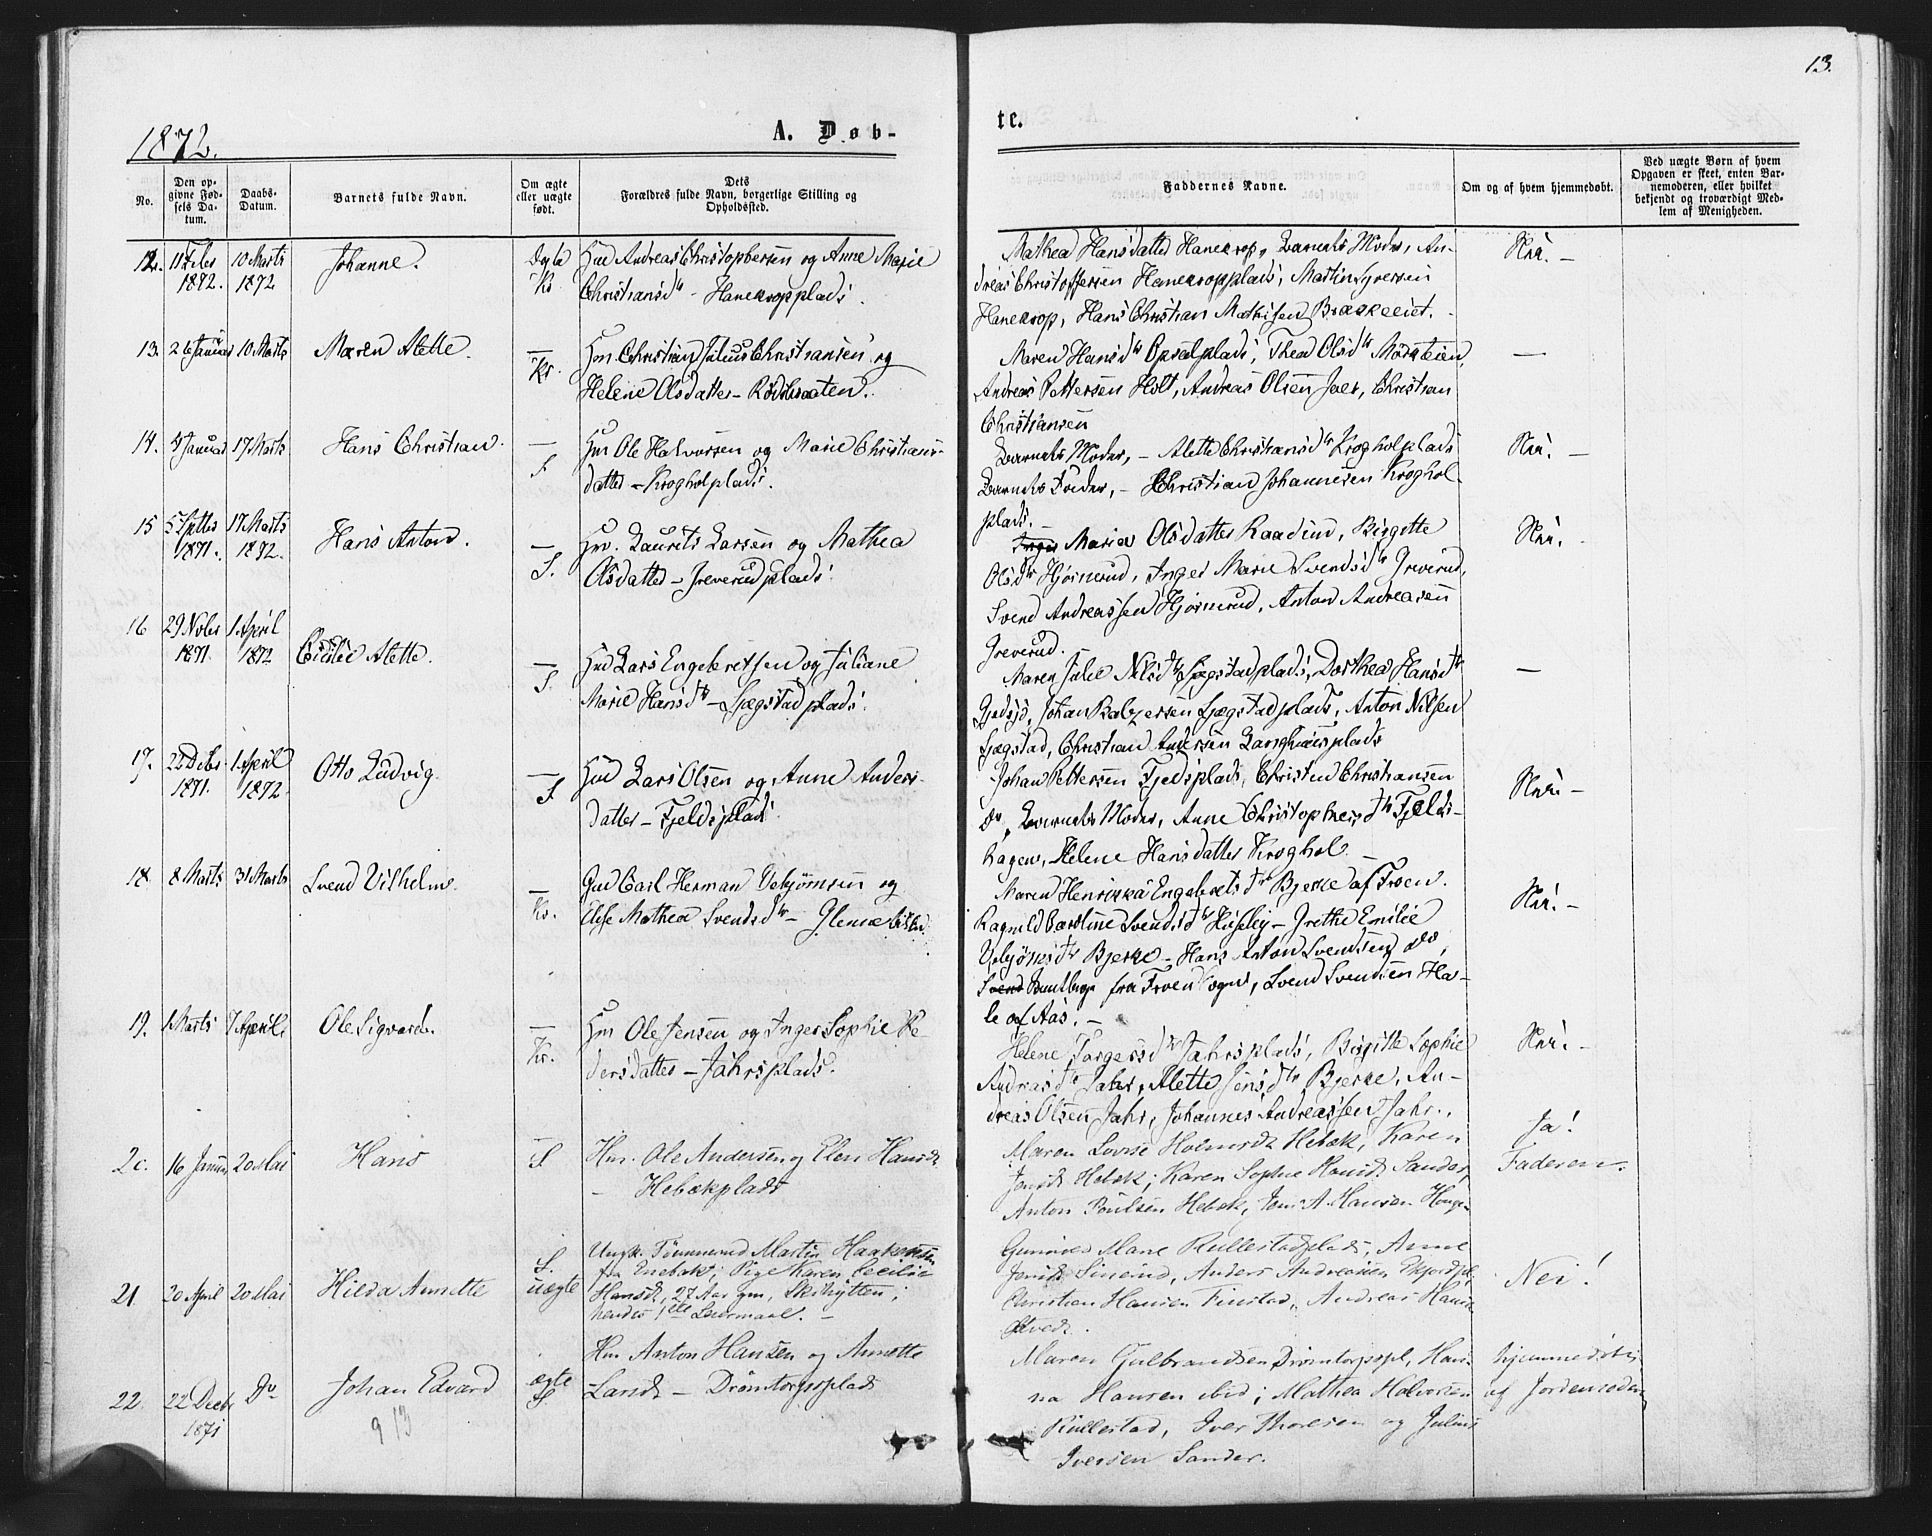 13.
1872.
A. Døb-
te.
No.
Den op-
givne Fød-
sels Da-
tum.
Daabs-
Datum.
Barnets fulde Navn.
Om ægte
eller uægte
født.
Dets
Forældres fulde Navn, borgerlige Stilling og
Opholdssted.
Faddernes Navne.
Om og af hvem hjemmedøbt.
Ved uægte Børn af hvem
Opgaven er skeet, enten Bar-
nemoderen, eller hvilket
bekjendt og troværdigt Med-
lem af Menigheden.
12.
11 Febr
1872.
10 Marts
1872
Johanne.
Ægte
Kr.
Andreas Christophersen og Anne Marie
Christiansdtr - Hanekropplads.
Mathea Hansdatter Hanekrop, Barnets Moder, An-
dreas Christoffersen Hanekropplads, Martin Syversen
Hanekrop, Hans Christian Mathisen Braekeeiet.
Nei. -
13.
26 Januar
10 Marts
Maren Alette.
—
Kr.
Hm. Christian Julius Christiansen og
Helene Olsdatter - Rødsbraaten.
Maren Hansdtr Opsalplads, Thea Olsdtr
Andreas Pettersen Holt, Andreas Olsen Jaer, Christian
Christiansen
—
14.
4 Januar
17 Marts
Hans Christian.
—
S.
Hm Ole Halvorsen og Marie Christians-
datter - Krogholplads.
Barnets Moder, - Alette Christiansdtr Krogholplads
Barnets Fader, - Christian Johannesen Kroghol
plads. -
Nei. -
15
5 Septbr
1871.
17 Marts
1872.
Hans Anton.
—
S.
Hm. Laurits Larsen og Mathea
Olsdatter - Greverudplads.
Inger Maria Olsdatter Raadim, Birgitte
Olsdtr Hjørnerud, Inger Marie Svendsdtr Greverud,
Svend Andreassen Hjørnerud, Anton Andreasen
Greverud.
Nei.
16
29 Novbr
1871.
1 April
1872
Alette.
—
S.
Lars Engebretsen og Juliane
Marie Hansdtr - Ljøgstadplads.
Maren Julie Nilsdtr Ljøgstadplads, Dorthea Hansdtr
Gjedsjø, Johan Balzersen Ljøgstadplads, Anton Nilsen
Ljøgstad, Christian Andersen Langhuusplads
—
17.
22 Decbr
1871.
1 April
1872.
Otto Ludvig.
—
S.
Lars Olsen og Anne Anders-
datter - Fjeldsplads.
Johan Pettersen Fjeldsplads, Christen Christiansen
Do, Barnets Moder, Anne Christophersdtr Fjelds-
hagen, Helene Hansdatter Kroghol. -
Nei. -
18.
8 Marts
31 Marts
Svend Vilhelm.
—
Kr.
Carl Herman Vebjørnsen og
Else Mathea Svendsdtr -
Maren Henrikka Engebretsdtr Bjerke af Froen.
Ragnild Caroline Svendsdtr Huseby - Grethe Emilie
Vebjørnsdtr Bjerke - Hans Anton Svendsen
Svend fra Froen Sogn, Svend Svendsen Ha-
le af Aas. -
Nei. -
19.
1 Marts
7 April
Ole Sigvard.
—
Kr.
Hm Ole Jensen og Inger Sophie Pe-
dersdatter - Jahrsplads.
Helene Torgersdtr Jahrsplads, Birgitte Sophie
Andreasdtr Jahr, Alette Jensdtr Bjerke, An-
dreas Olsen Jahr, Johannes Andreassen Jahr.
Nei. -
20.
16 Januar
20 Mai
Hans
S
Hm. Ole Andersen og Elen Hansdt.
- Hebækplads
Maren Lovise Holmsdt. Hebæk, Karen
Jensdt. Hebæk; Karen Sophie Hansdt. Sander,
Anton Poulsen Hebæk, Jens A. Hansen Haugen
Ja!
Faderen.
21.
20 April
20 Mai
Hilda Annette
S.
uægte
Ungk. Tømmermand Martin Haakensen
fra Enebak; Pige Karen Cecilie
Hansdt., 27 Aar gm, Skihytten;
hendes 1ste Leiermaal. -
Marie Rullestadplads, Anne
Jensdt. Sineind, Anders Andreassen
Christian Hansen Finstad, Andreas Hansen
Nei!
22.
22 Decb.
1871
Do
Johan Edvard
913
ægte
S.
Hm Anton Hansen og Annette
Larsdt. - Drømtorpsplads
Maren Gulbrandsen Drømtorpspl, Han-
na Hansen ibid; Mathea Halvorsen
Rullestad, Iver Thoresen og Julius
Iversen Sander.
hjemmedøbt
af Jordemoderen